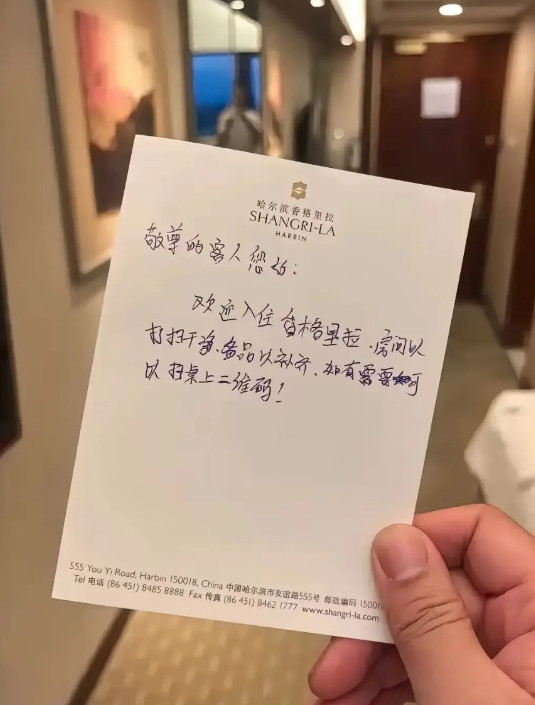 哈尔滨香格里拉
SHANGRI-LA
HARBIN
敬尊的客人您好:
欢迎入住香格里拉、房间以
打扫干净、备品以补齐、如有需要可
以扫桌上二维码!
555 You Yi Road, Harbin 150018, China 中国哈尔滨市友谊路555号 邮政编码 150018
Tel 电话 (86 451) 8485 8888 Fax 传真 (86 451) 8462 1777 www.shangri-la.com